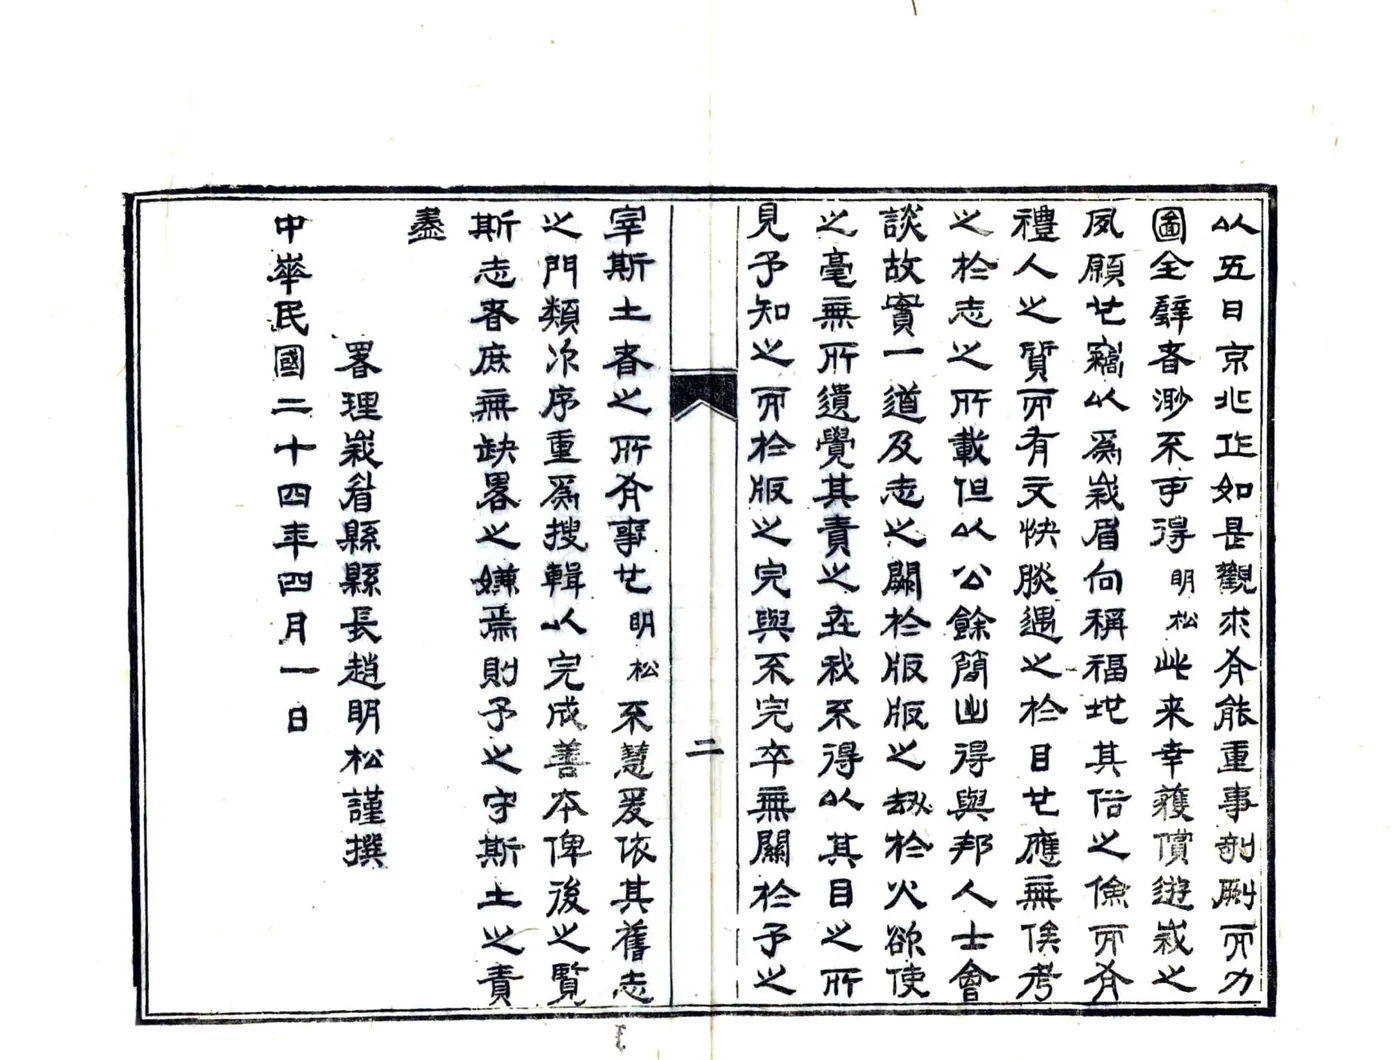 以五日京兆作如是觀求有能重事剞劂而力
圖全璧者渺不可得明松此来幸獲償遊峩之
夙願也竊以為峩眉向稱福地其俗之儉而有
禮人之質而有文快睒遇之於目也應無俟考
之於志之所載但以公餘簡出得與邦人士會
談故實一道及志之闕於版版之劫於火欲使
之毫無所遺覺其責之在我不得以其目之所
見予知之而於版之完與不完卒無關於予之
二
宰斯土者之所有事也明松不慧爰依其舊志
之門類次序重為搜輯以完成善本俾後之覽
斯志者庶無缺畧之嫌焉則予之守斯土之責
盡
署理峩眉縣縣長趙明松謹撰
中華民國二十四年四月一日